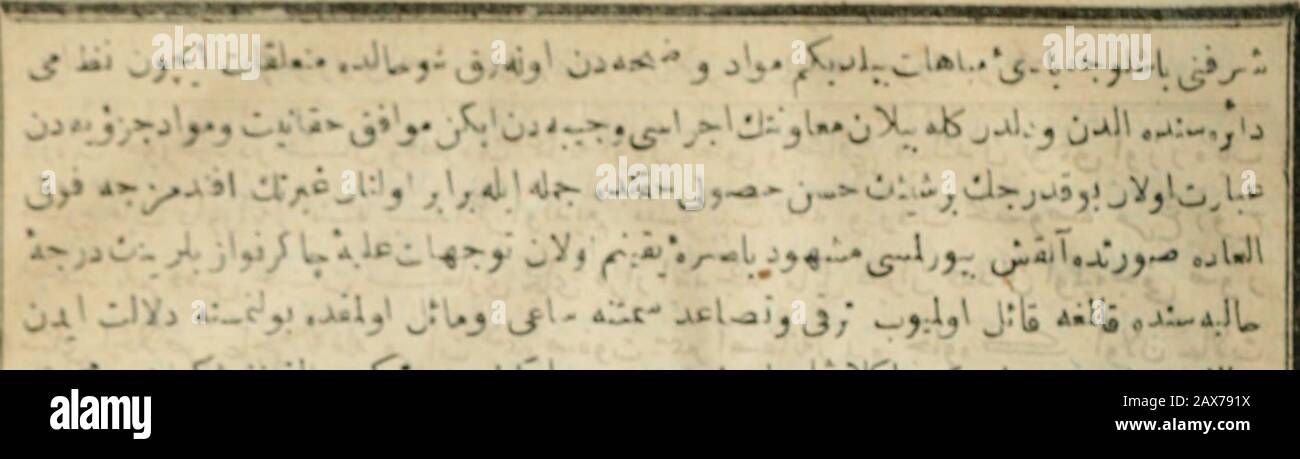 شرفنی مباهات بیلدیکم مواد و دن اوله‌رق شو حالده متعلقات ایچون نظامی
دائره‌سنده الدن و دلدر کله بیلان معاونتك اجراسی وجیبه‌دن ایکن موافق حقانیت و مواد جزؤیه‌دن
عبارت اولان بوقدرجك برشیئك حسن حصولی جمله ایله برابر اولنان غیرتك افندمزجه فوق
العاده صورتده آلقش بیورلمسی مشهود باصره یقینم اولان توجهات علیهٔ چاکرنوازیلرینك درجهٔ
حالیه‌سنده قالمغه قائل اولمیوب ترقی و تصاعد سمتنه ساعی و مائل اولمقده بولنمسنه دلالت ایدن
alamy
Image ID: 2AX791X
www.alamy.com